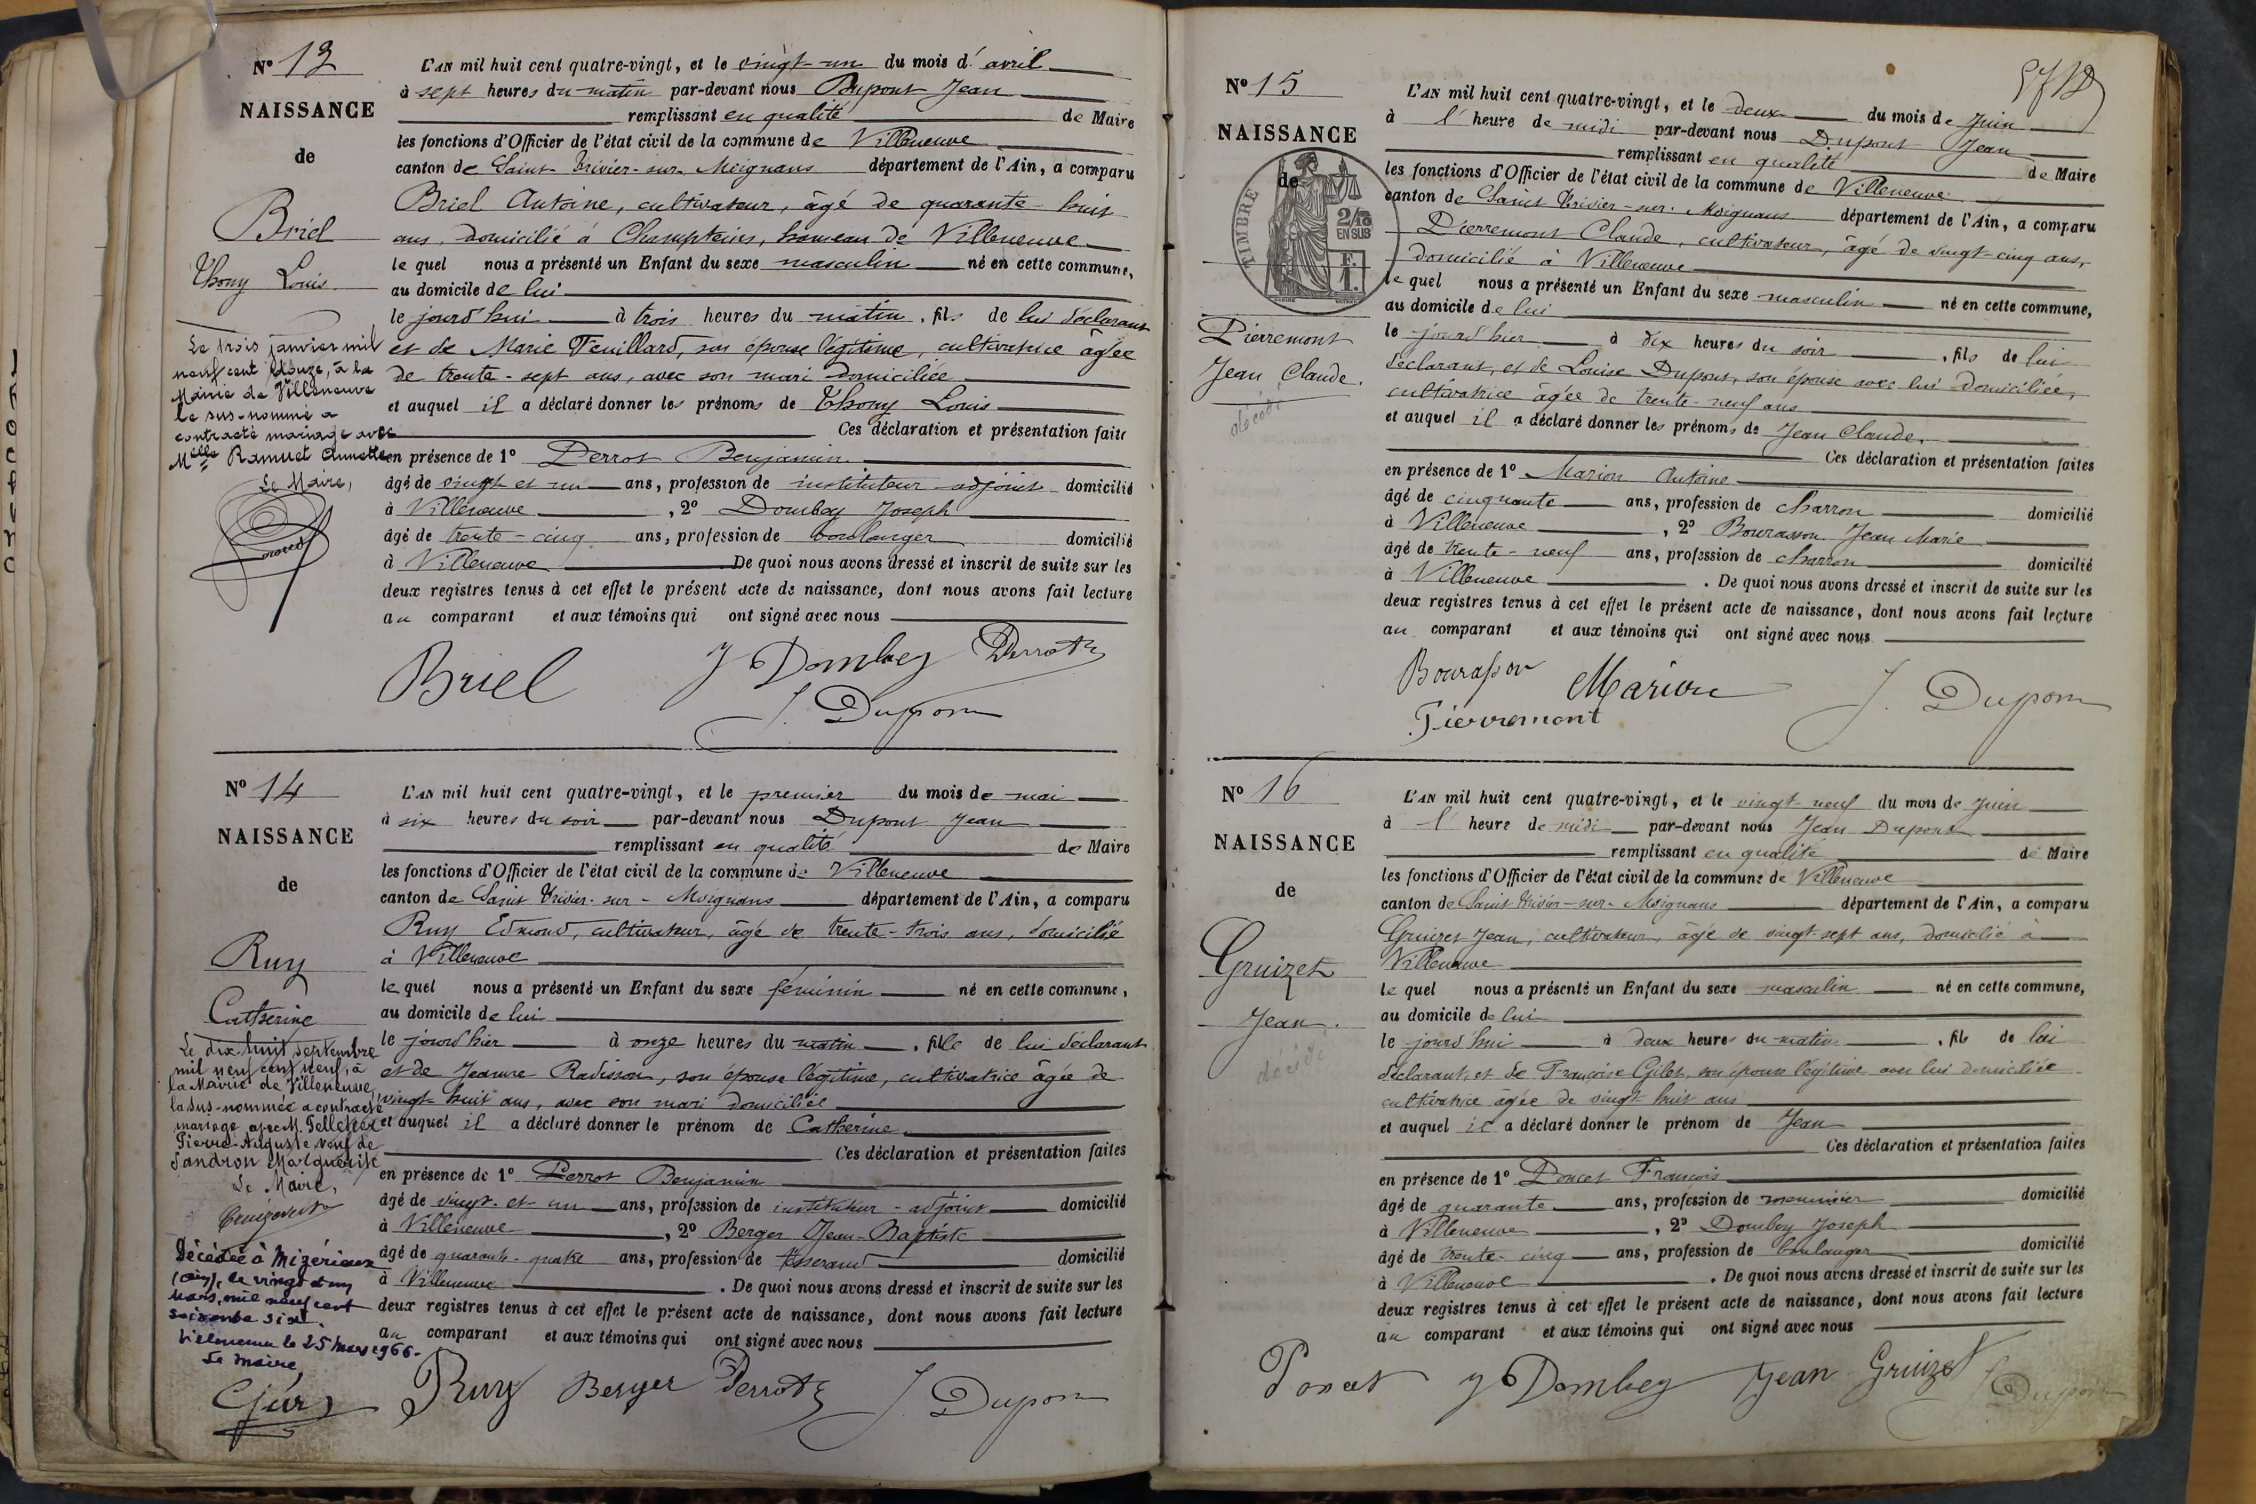 N° 13
NAISSANCE
de
Briel
Thony Louis
Le trois janvier mil
neuf cent douze, à la
Mairie de Villeneuve
le sus-nommé a
contracté mariage avec
Melle Ramuet Annette
Le Maire,
L'AN mil huit cent quatre-vingt, et le vingt-un du mois d'avril
à sept heures du matin par-devant nous Dupont Jean
remplissant en qualité de Maire
les fonctions d'Officier de l'état civil de la commune de Villeneuve
canton de Saint Trivier-sur-Moignans département de l'Ain, a comparu
Briel Antoine, cultivateur, âgé de quarante-huit
ans, domicilié à Champteins, hameau de Villeneuve
le quel nous a présenté un Enfant du sexe masculin né en cette commune,
au domicile de lui
le jourd'hui à trois heures du matin, fils de lui déclarant
et de Marie Feuillard, son épouse légitime, cultivatrice âgée
de trente-sept ans, avec son mari domiciliée
et auquel il a déclaré donner les prénoms de Thony Louis
Ces déclaration et présentation faite
en présence de 1° Perrot Benjamin
âgé de vingt et un ans, profession de instituteur-adjoint domicilié
à Villeneuve, 2° Dombey Joseph
âgé de trente-cinq ans, profession de boulanger domicilié
à Villeneuve De quoi nous avons dressé et inscrit de suite sur les
deux registres tenus à cet effet le présent acte de naissance, dont nous avons fait lecture
au comparant et aux témoins qui ont signé avec nous
Briel J Dombey Perrot
J. Dupont
N° 14
NAISSANCE
de
Ruy
Catherine
Le dix-huit septembre
mil neuf cent neuf, à
la Mairie de Villeneuve,
la sus-nommée a contracté
mariage avec M. Pelletier
Pierre-Auguste veuf de
Jandron Marguerite
Le Maire,
Décédée à Mizérieux
(Ain), le vingt et un
Mars, mil neuf cent
soixante six.
Villeneuve le 25 Mars 1966.
Le Maire,
L'AN mil huit cent quatre-vingt, et le premier du mois de mai
à six heures du soir par-devant nous Dupont Jean
remplissant en qualité de Maire
les fonctions d'Officier de l'état civil de la commune de Villeneuve
canton de Saint Trivier-sur-Moignans département de l'Ain, a comparu
Ruy Edmond, cultivateur, âgé de trente-trois ans, domicilié
à Villeneuve
le quel nous a présenté un Enfant du sexe féminin né en cette commune,
au domicile de lui
le jourd'hier à onze heures du matin, fille de lui déclarant
et de Jeanne Radisson, son épouse légitime, cultivatrice âgée de
vingt-huit ans, avec son mari domiciliée
et auquel il a déclaré donner le prénom de Catherine
Ces déclaration et présentation faites
en présence de 1° Perrot Benjamin
âgé de vingt-et-un ans, profession de instituteur-adjoint domicilié
à Villeneuve, 2° Berger Jean-Baptiste
âgé de quarante-quatre ans, profession de tisserand domicilié
à Villeneuve. De quoi nous avons dressé et inscrit de suite sur les
deux registres tenus à cet effet le présent acte de naissance, dont nous avons fait lecture
au comparant et aux témoins qui ont signé avec nous
Ruy Berger Perrot J. Dupont
N° 15
NAISSANCE
de
TIMBRE
2/10 EN SUS
F. 1.
Pierremont
Jean Claude.
décédé
L'AN mil huit cent quatre-vingt, et le deux du mois de Juin
à l'heure de midi par-devant nous Dupont Jean
remplissant en qualité de Maire
les fonctions d'Officier de l'état civil de la commune de Villeneuve
canton de Saint Trivier-sur-Moignans département de l'Ain, a comparu
Pierremont Claude, cultivateur, âgé de vingt-cinq ans,
domicilié à Villeneuve
le quel nous a présenté un Enfant du sexe masculin né en cette commune,
au domicile de lui
le jourd'hier à dix heures du soir, fils de lui
déclarant, et de Louise Dupont, son épouse avec lui domiciliée,
cultivatrice âgée de trente-neuf ans
et auquel il a déclaré donner les prénoms de Jean Claude.
Ces déclaration et présentation faites
en présence de 1° Marion Antoine
âgé de cinquante ans, profession de charron domicilié
à Villeneuve, 2° Bourasson Jean Marie
âgé de trente-neuf ans, profession de charron domicilié
à Villeneuve. De quoi nous avons dressé et inscrit de suite sur les
deux registres tenus à cet effet le présent acte de naissance, dont nous avons fait lecture
au comparant et aux témoins qui ont signé avec nous
Bourasson Marion J. Dupont
Pierremont
N° 16
NAISSANCE
de
Gruizet
Jean.
décédé
L'AN mil huit cent quatre-vingt, et le vingt-neuf du mois de Juin
à l'heure de midi par-devant nous Jean Dupont
remplissant en qualité de Maire
les fonctions d'Officier de l'état civil de la commune de Villeneuve
canton de Saint Trivier-sur-Moignans département de l'Ain, a comparu
Gruizet Jean, cultivateur, âgé de vingt-sept ans, domicilié à
Villeneuve
le quel nous a présenté un Enfant du sexe masculin né en cette commune,
au domicile de lui
le jourd'hui à deux heures du matin, fils de lui
déclarant, et de Françoise Gilet, son épouse légitime avec lui domiciliée
cultivatrice âgée de vingt-huit ans
et auquel il a déclaré donner le prénom de Jean
Ces déclaration et présentation faites
en présence de 1° Poncet François
âgé de quarante ans, profession de menuisier domicilié
à Villeneuve, 2° Dombey Joseph
âgé de trente-cinq ans, profession de boulanger domicilié
à Villeneuve. De quoi nous avons dressé et inscrit de suite sur les
deux registres tenus à cet effet le présent acte de naissance, dont nous avons fait lecture
au comparant et aux témoins qui ont signé avec nous
Poncet J Dombey Jean Gruizet J Dupont